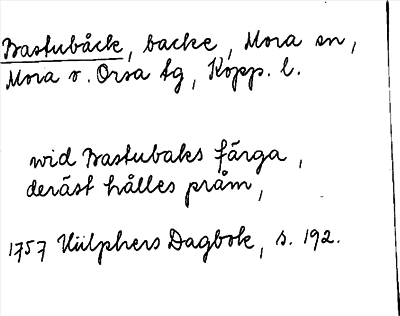 Bastubåck, backe, Mora sn,
Mora o. Orsa tg, Kopp. l.
wid Bastubaks färga,
deräst hålles pråm,
1757 Hülphers Dagbok, s. 192.